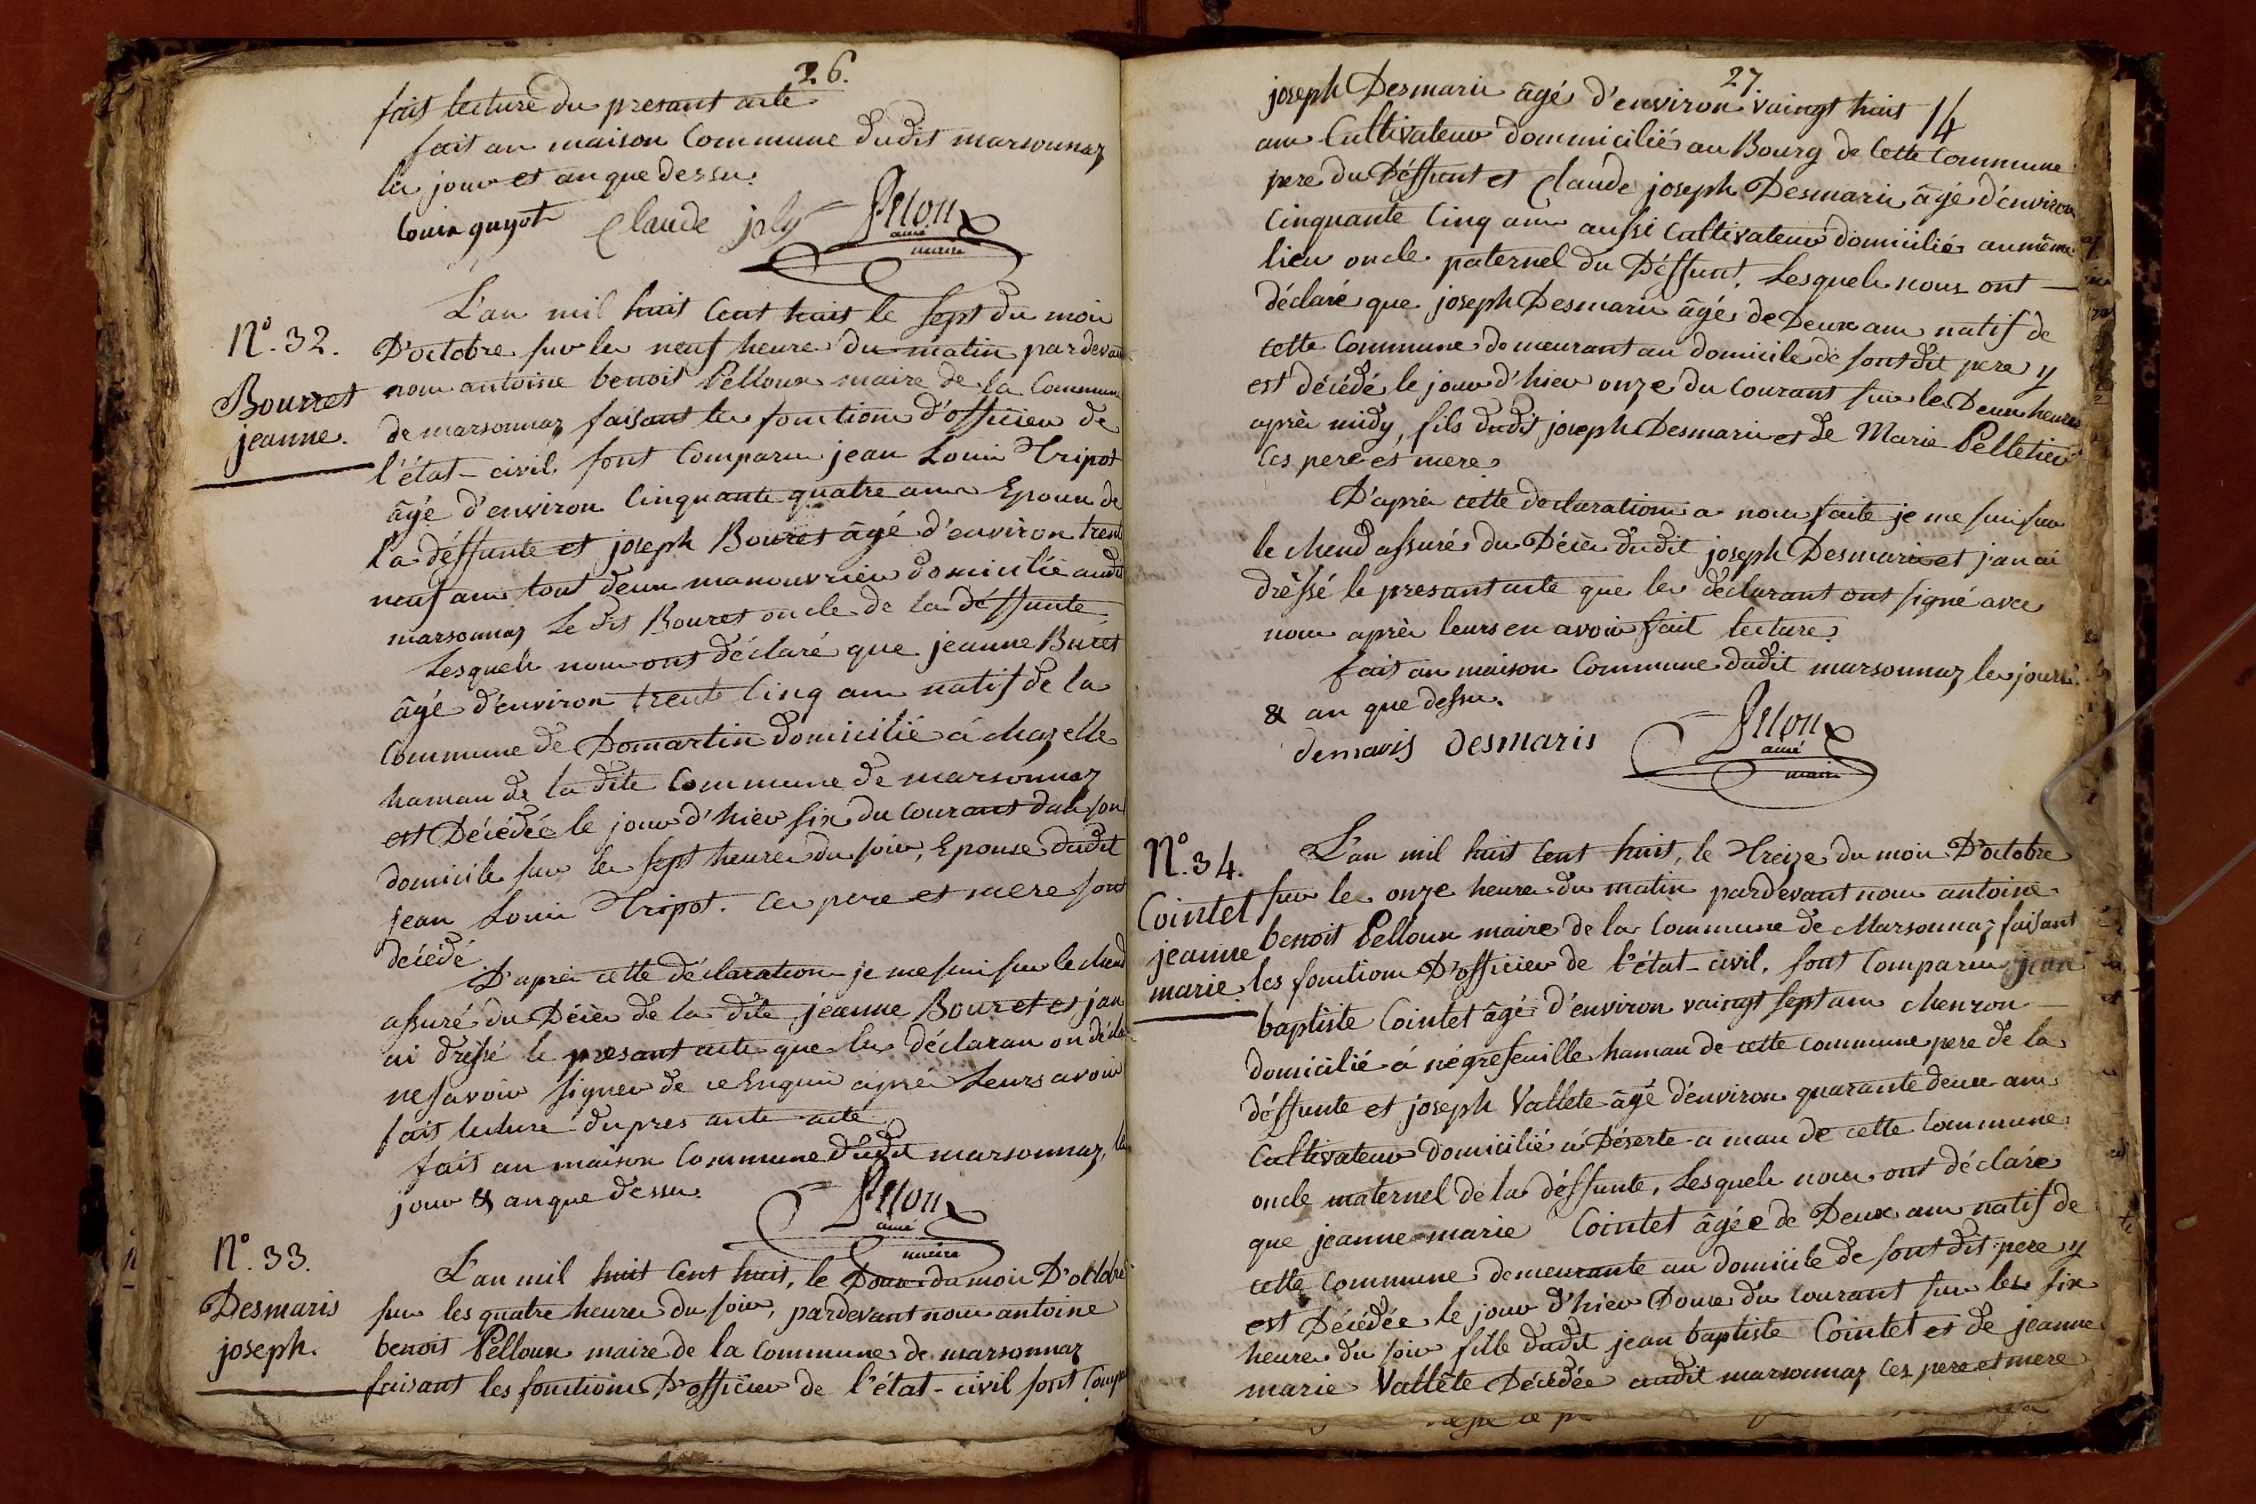 26.
fait lecture du presant acte
fait an maison Commune dudit marsonnaz
les jour et an que dessu.
Louis guyot Claude joly Pelloux
ainé
maire
N.º 32.
Bourret
jeanne.
L'an mil huit Cent huit le Sept du mois
D'octobre sur les neuf heure du matin pardevant
nous antoine benoit Pelloux maire de la Commune
de marsonnaz faisant les fonctions d'officier de
l'état-civil sont Comparu jean Louis Tripot
âgé d'environ Cinquante quatre ans Epoux de
la déffunte et joseph Bouret âgé d'environ trente
neuf ans tout deux manouvrier domicilié audit
marsonnaz Le dit Bouret oncle de la déffunte
Lesquels nous ont déclaré que jeanne Buret
âgé d'environ trente Cinq ans natif de la
Commune de Domartin domicilié à chazelle
hamau de la dite Commune de marsonnaz
est Décédée le jour d'hier six du courant dans son
domicile sur les sept heures du soir, Epouse dudit
jean Louis Tripot. Ces pere et mere sont
décédé
D'après cette déclaration je me suis sur le cham
assuré du Décès de la dite jeanne Bouret et jan
ai dressé le presant acte que les déclaran on décla
ne savoir signer de ce Enquis après Leurs avoir
fait lecture du pres ante acte
fait an maison Commune dudit marsonnaz, les
jour & an que dessu.
Pelloux
ainé
maire
N.º 33.
Desmaris
joseph.
L'an mil huit Cent huit, le Douze du mois D'octobre
sur les quatre heures du soir, pardevant nous antoine
benoit Pelloux maire de la Commune de marsonnaz
faisant les fonctions D'officier de l'état-civil sont Comparu
27.
14
joseph Desmaris âgé d'environ vaingt huit
ans Cultivateur dommicilié au Bourg de Cette Commune
pere du Déffunt et Claude joseph Desmaris âgé d'environ
Cinquante Cinq ans aussi Cultivateur domicilié au même
lieu oncle paternel du Déffunt. Lesquels nous ont
déclaré que joseph Desmaris âgé de Deux ans natif de
cette Commune demeurant au domicile de sont dit pere y
est décédé le jour d'hier onze du courant sur les Deux heures
après midy, fils dudit joseph Desmaris et de Marie Pelletier
Ces pere et mere
D'après cette declaration a nous faite je me suis sur
le chemd assuré du Décès dudit joseph Desmaris et j'an ai
dréssé le presant acte que les déclarant ont signé avec
nous après leurs en avoir fait lecture.
fait an maison Commune dudit marsonnaz les jours
& an que dessu.
demaris desmaris Pelloux
ainé
maire
N.º 34.
Cointet
jeanne
marie
L'an mil huit cent huit, le Treize du mois D'octobre
sur les onze heures du matin pardevant nous antoine
benoit Pelloux maire de la Commune de Marsonnaz faisant
les fonctions D'officier de l'état-civil. sont Comparu jean
baptiste Cointet âgé d'environ vaingt sept ans charron
domicilié à négrefeuille hamau de cette commune pere de la
déffunte et joseph Vallete âgé d'environ quarante deux ans
Cultivateur domicilié à Déserte a mau de cette Commune
oncle maternel de la déffunte, Lesquels nous ont déclaré
que jeanne marie Cointet âgée de Deux ans natif de
cette Commune demeurante au domicile de sont dit pere y
est Décédée le jour d'hier Douze du courant sur les six
heures du soir fille dudit jean baptiste Cointet et de jeanne
marie Vallète Décédée audit marsonnaz Ces pere et mere